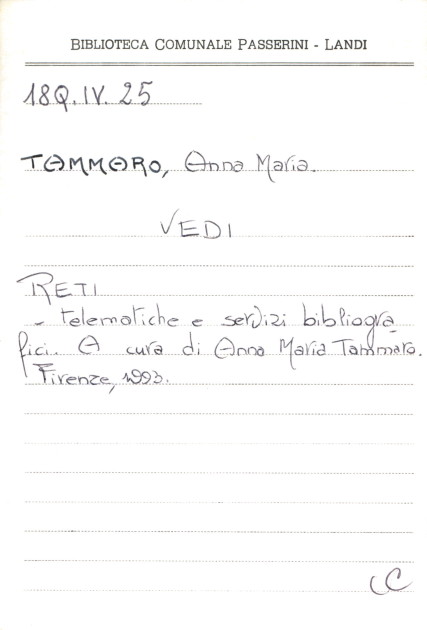 BIBLIOTECA COMUNALE PASSERINI - LANDI
18Q.IV.25
TAMMARO, Anna Maria.
VEDI
RETI
- telematiche e servizi bibliogra
fici. A cura di Anna Maria Tammaro.
Firenze, 1993.
C